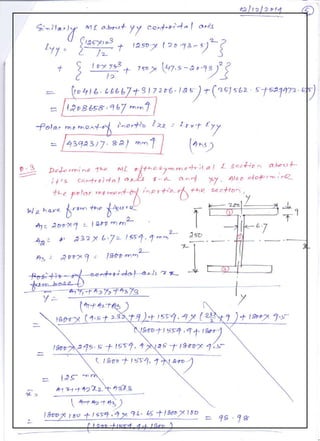 02/12/2014 (5)
Similarly MI about yy centroidal axis
Iyy = { 125×10³/12 + 1250 × (20.93-5)² }
+ { 10×75³/12 + 750 × (47.5-20.93)² }
= (10416.66667+317206.125)+(351562.5+529473.675)
= 1208658.967 mm4
Polar moment of inertia Izz = Ixx + Iyy
= 4392317.821 mm4 (Ans)
Q-3 Determine the MI of the symmetrical I section about
its centroidal axis x-x and yy. Also determine
the polar moment of inertia of the section.
We have from the figure
A1 = 200×9 = 1800 mm2
A2 = 232 × 6.7 = 1554.4 mm2
A3 = 200×9 = 1800 mm2
200
9
6.7
250
x
x
y
y
1
2
3
Position of centroidal axis xx
from base
Y = A1Y1+A2Y2+A3Y3
(A1+A2+A3)
= 1800 × (9.5+232+9)+1554.4 × (232/2+9)+1800×9.5
(1800+1554.4+1800)
= 1800×295.5+1554.4×125+1800×9.5
(1800+1554.4+1800)
= 125 mm
x = A1x1+A2x2+A3x3
(A1+A2+A3)
= 1800×100+1554.4×96.65+1800×100 = 98.98
(1800+1554.4+1800)